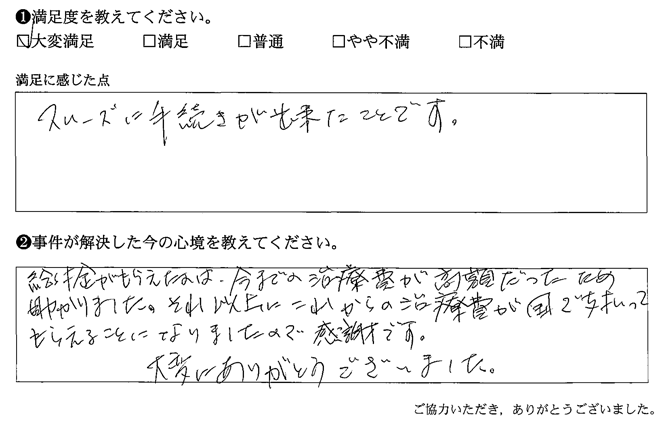 ❶満足度を教えてください。
☑大変満足 □満足 □普通 □やや不満 □不満
満足に感じた点
スムーズに手続きが出来たことです。
❷事件が解決した今の心境を教えてください。
給付金がもらえたのは、今までの治療費が高額だったため
助かりました。それ以上にこれからの治療費が国で支払って
もらえることになりましたので感謝です。
大変にありがとうございました。
ご協力いただき、ありがとうございました。